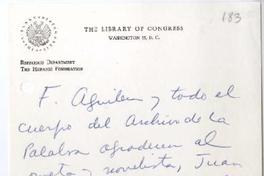 183
THE LIBRARY OF CONGRESS
WASHINGTON 25, D. C.
REFERENCE DEPARTMENT
THE HISPANIC FOUNDATION
F. Aguilera y todo el
cuerpo del Archivo de la
Palabra agradecen al
poeta y novelista, Juan